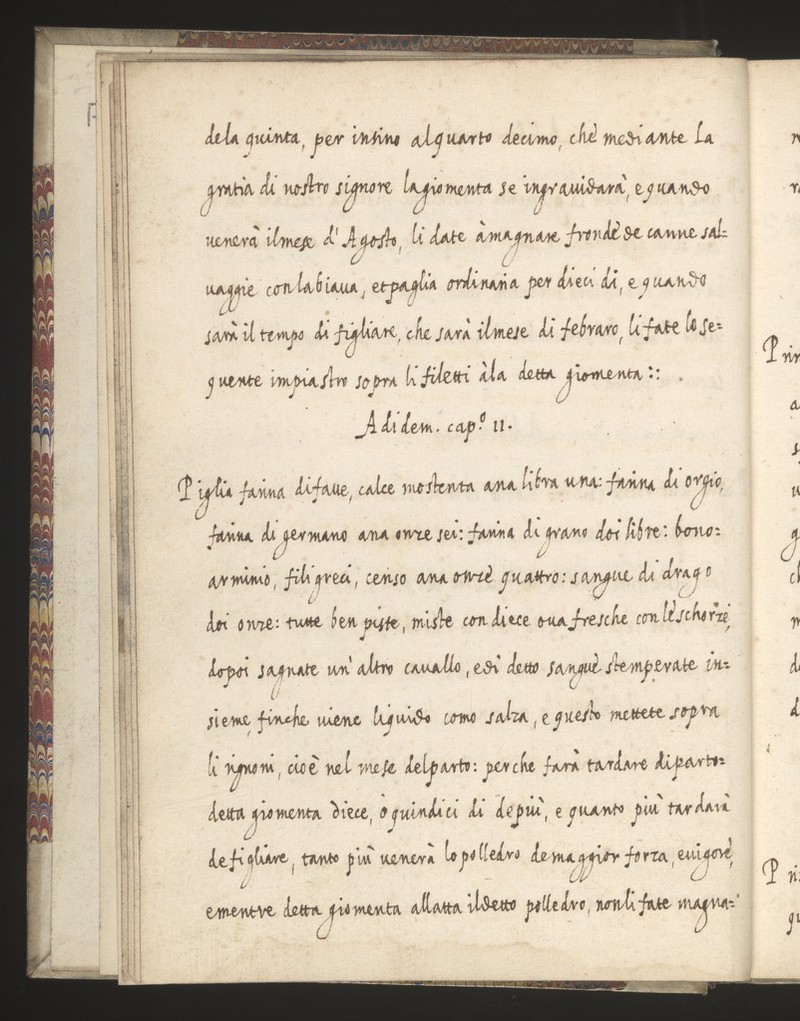 dela quinta, per insino alquarto decimo, chè mediante La
gratia di nostro signore lagiomenta se ingrauidarà, e quando
uenerà ilmese d'Agosto, li date à magnare frondè de canne sal=
uaggie conlabiaua, et paglia ordinaria per dieci di, e quando
sarà il tempo di figliare, che sarà ilmese di febraro, li fate lo se=
quente impiastro sopra li filetti àla detta giomenta ::
Adidem. cap.º 11.
Piglia farina difaue, calce mostenta ana libra una: farina di orgio,
farina di germano ana onze sei: farina di grano doi libre: bono=
arminio, filigreci, censo ana onzè quattro: sangue di drago
doi onze: tutte ben piste, miste con diece oua fresche con lè schorze,
dopoi sagnate un'altro cauallo, e di detto sanguè stemperate in=
sieme, finche uiene liquido como salza, e questo mettete sopra
li rignoni, cioè nel mese delparto: perche farà tardare diparto=
detta giomenta diece, ò quindici di depiù, e quanto più tardarà
defigliare, tanto più uenerà lo polledro demaggior forza, euigorè,
ementre detta giomenta allatta ildetto polledro, nonli fate magna=
P
P